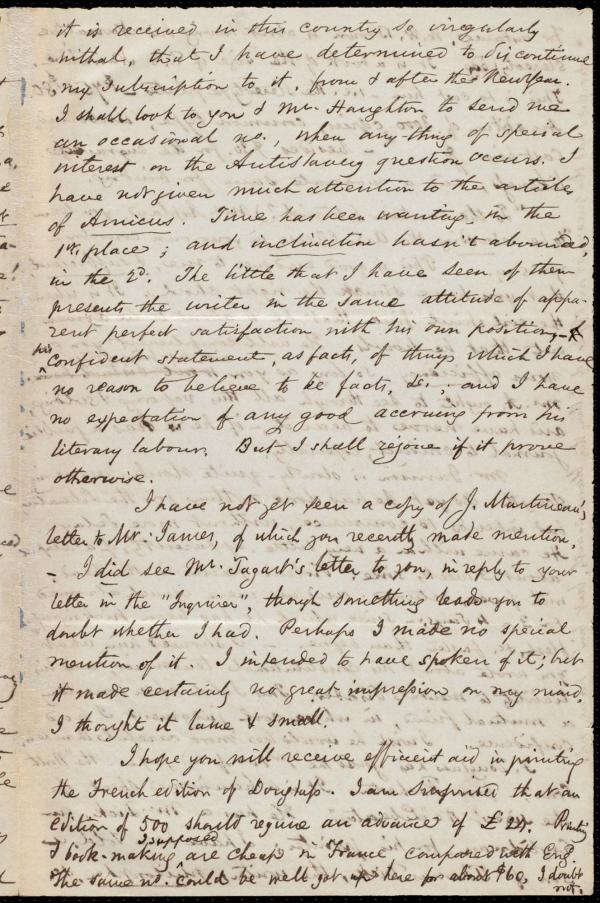 it is received in this country so irregularly
withal, that I have determined to discontinue
my subscription to it, from & after the New Year.
I shall look to you & Mr. Haughton to send me
an occasional no., when any thing of special
interest on the Antislavery question occurs. I
have not given much attention to the articles
of Amicus. Time has been wanting, in the
1st. place; and inclination hasn't abounded,
in the 2d. The little that I have seen of them
presents the writer in the same attitude of appa-
rent perfect satisfaction with his own position, - &
his
confident statement, as facts, of things which I have
no reason to believe to be facts, &c.; and I have
no expectation of any good accruing from his
literary labour. But I shall rejoice if it prove
otherwise.
I have not yet seen a copy of J. Martineau's
letter to Mr. James, of which you recently made mention.
- I did see Mr. Tagart's letter to you, in reply to your
letter in the "Inquirer", though something leads you to
doubt whether I had. Perhaps I made no special
mention of it. I intended to have spoken of it; but
it made certainly no great impression on my mind.
I thought it lame & small.
I hope you will receive efficient aid in printing
the French edition of Douglass. I am surprised that an
edition of 500 should require an advance of £
Printing
I supposed
& book-making, are cheap in France compared with Eng.
The same no. could be well got up here for about $60, I doubt
not.